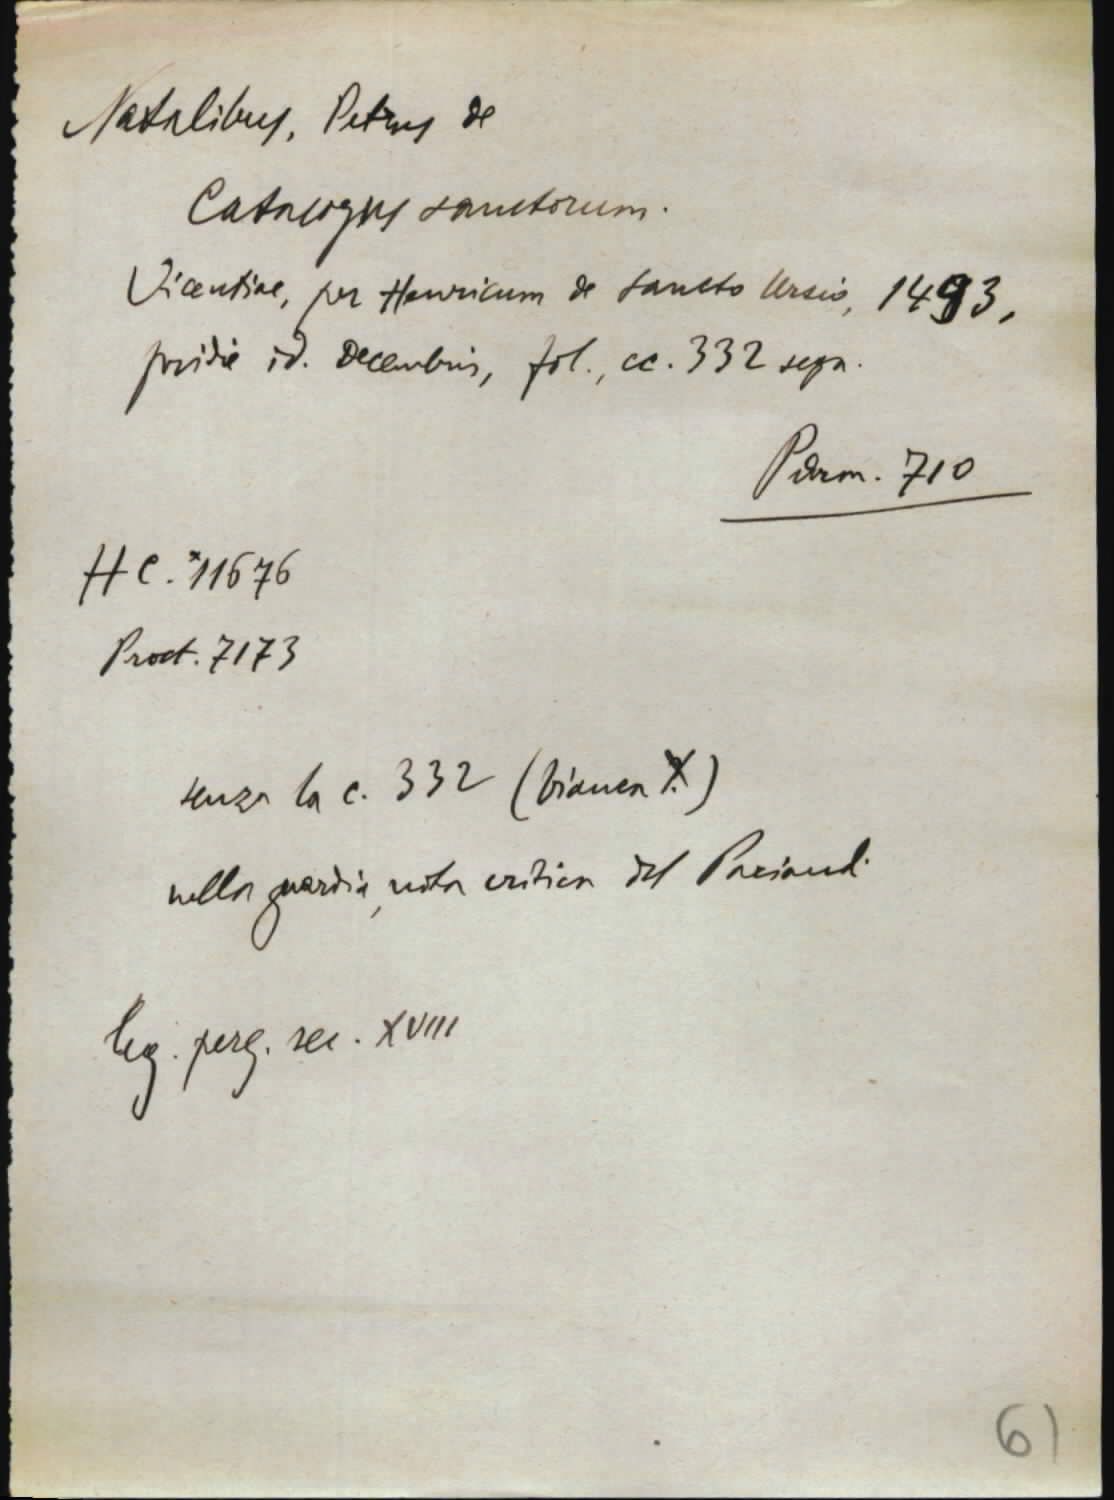 Natalibus, Petrus de
Catalogus sanctorum.
Vicentiae, per Henricum de sancto Ursio, 1493,
pridie id. Decembris, fol., cc. 332 segn.
Parm. 710
HC. *11676
Proct. 7173
senza la c. 332 (bianca)
nella guardia, nota critica del Paciaudi
leg. perg. sec. XVIII
61